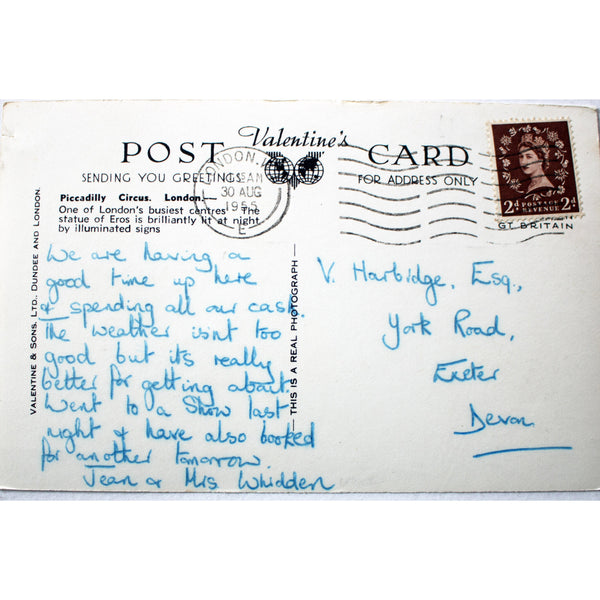 POST Valentine's CARD
SENDING YOU GREETINGS
FOR ADDRESS ONLY
LONDON
30 AUG
1955
E
2D POSTAGE REVENUE 2D
GT. BRITAIN
Piccadilly Circus. London.—
One of London's busiest centres. The
statue of Eros is brilliantly lit at night
by illuminated signs
VALENTINE & SONS, LTD., DUNDEE AND LONDON.
THIS IS A REAL PHOTOGRAPH
We are having a
good time up here
& spending all our cash.
The weather isnt too
good but its really
better for getting about.
Went to a Show last
night & have also booked
for another tomorrow.
Jean & Mrs Whidden
V. Harbidge, Esq.,
York Road,
Exeter
Devon